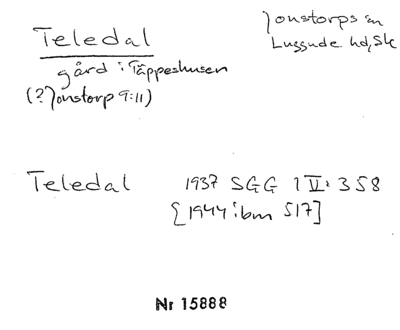 Teledal
Jonstorps sn
Luggude hd, Sk
gård i Täppeshusen
(? Jonstorp 9:11)
Teledal 1937 SGG 1 VI: 358
[1944 ibm 517]
Nr 15888